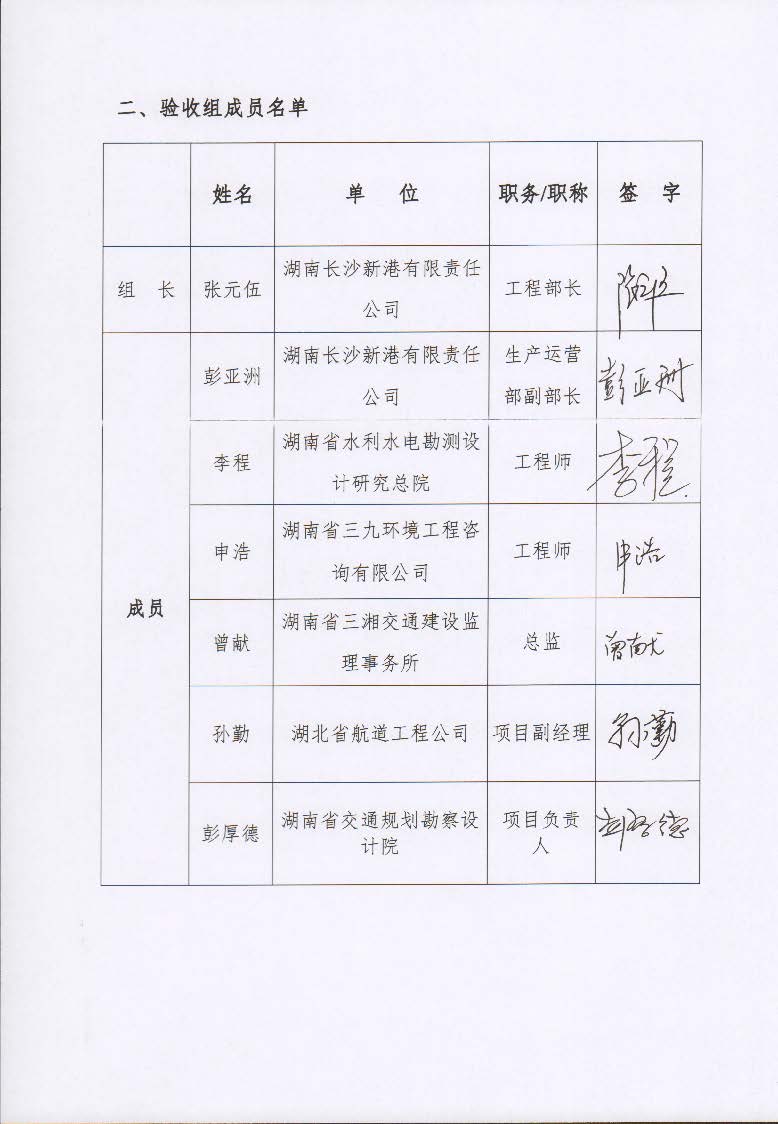 二、验收组成员名单
姓名 单 位 职务/职称 签 字
组 长 张元伍 湖南长沙新港有限责任
公司 工程部长
成员
彭亚洲 湖南长沙新港有限责任
公司 生产运营
部副部长 彭亚洲
李程 湖南省水利水电勘测设
计研究总院 工程师 李程
申浩 湖南省三九环境工程咨
询有限公司 工程师 申浩
曾献 湖南省三湘交通建设监
理事务所 总监 曾献
孙勤 湖北省航道工程公司 项目副经理 孙勤
彭厚德 湖南省交通规划勘察设
计院 项目负责
人 彭厚德